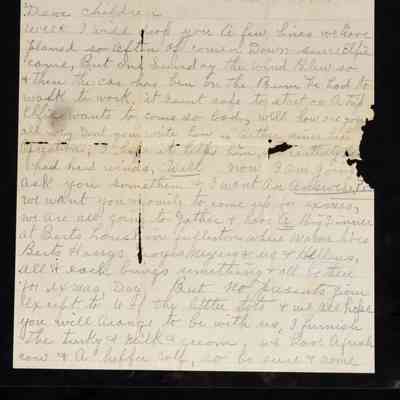 Dear Children
Well I will pop you a few lines we have
planed so often of comin Down since Effie
came, But one Sunday the wind Blew so
& then the car has ben on the Bum he had to
walk to work, it saint safe to start on A trip
Effie wants to come so bad, well how are you
all why dont you write him
had hard winds, Well now I am going
ask you somethin & I want An Answer
we want you to come up for exmas,
we are all going to gather & have A Big Dinner
at Berts house in fullerton where Wayne lives
Berts Harrys, Loyds Mezing & us &
all & each bring something & all be there
for exmas Day But No presents from
except to 4 of the little tots & we all hope
you will arange to be with us, I furnish
The turky & milk & cream we have A fresh
cow & A heffer calf, so be sure & come